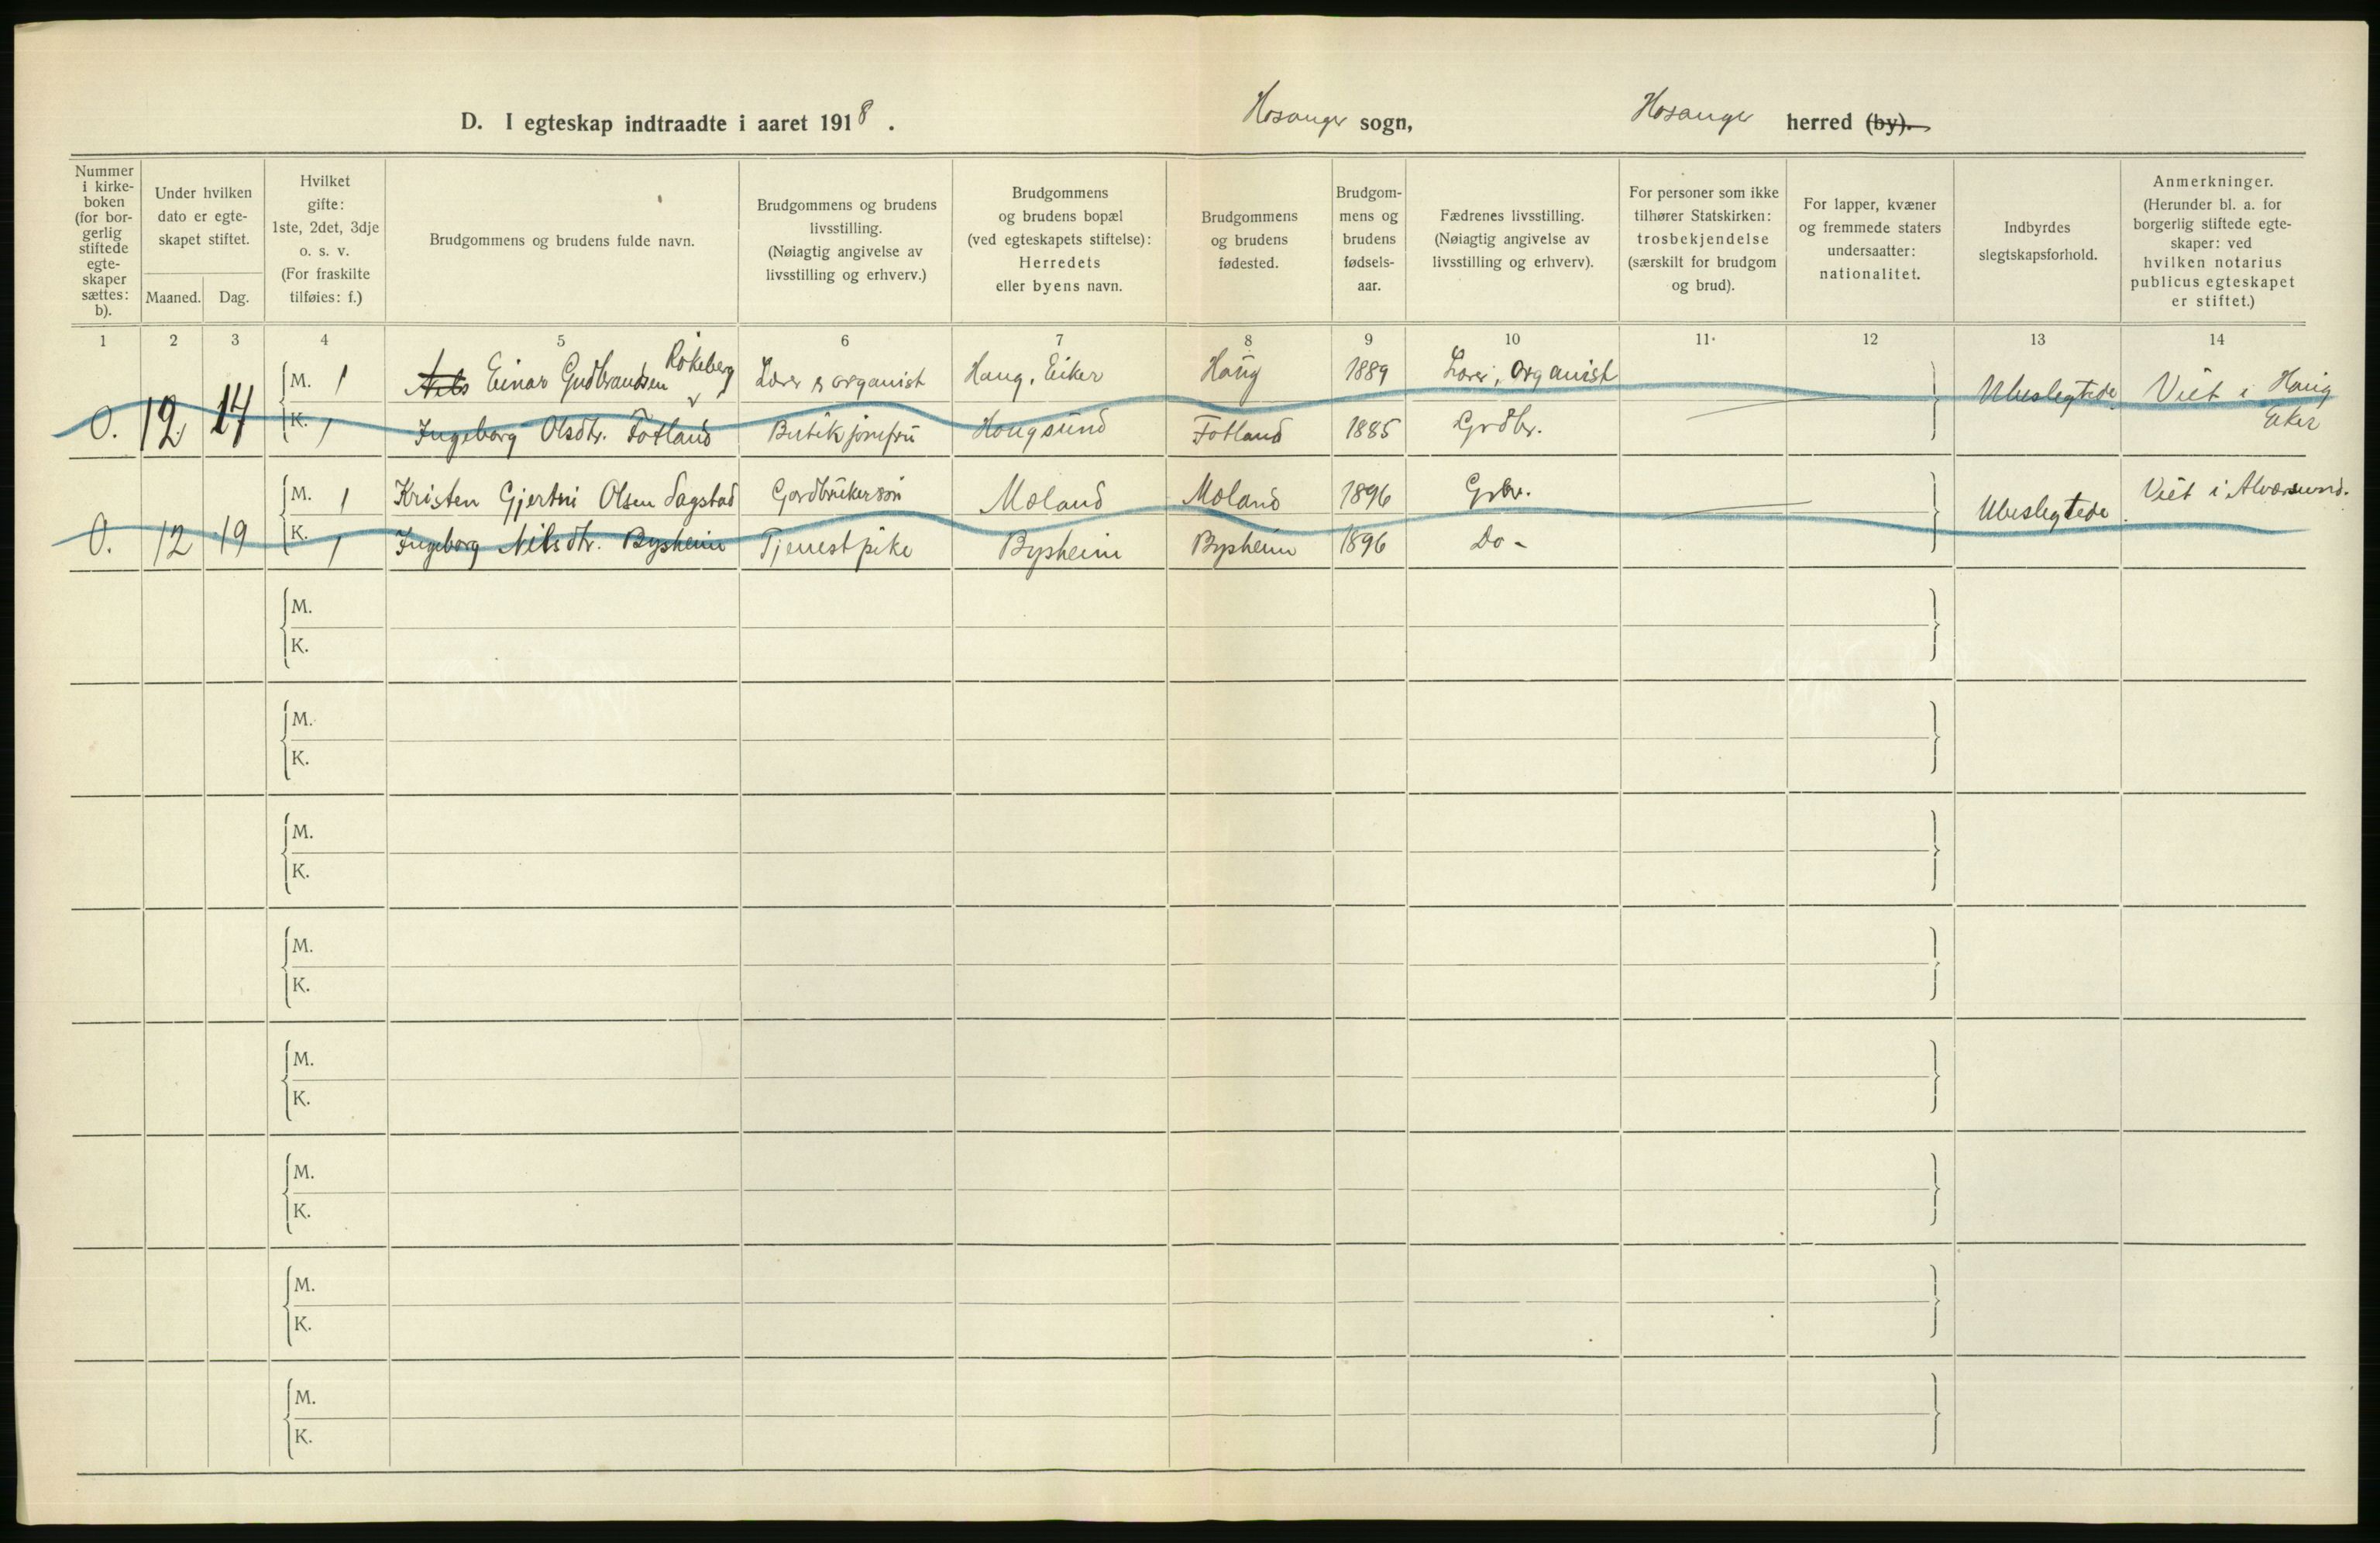 D. I egteskap indtraadte i aaret 1918. Hosanger sogn, Hosanger herred (by).
Nummer i kirkeboken (for borgerlig stiftede egteskaper sættes: b).
Under hvilken dato er egteskapet stiftet.
Maaned. Dag.
Hvilket gifte: 1ste, 2det, 3dje o. s. v. (For fraskilte tilføies: f.)
Brudgommens og brudens fulde navn.
Brudgommens og brudens livsstilling. (Nøiagtig angivelse av livsstilling og erhverv.)
Brudgommens og brudens bopæl (ved egteskapets stiftelse): Herredets eller byens navn.
Brudgommens og brudens fødested.
Brudgommens og brudens fødselsaar.
Fædrenes livsstilling. (Nøiagtig angivelse av livsstilling og erhverv).
For personer som ikke tilhører Statskirken: trosbekjendelse (særskilt for brudgom og brud).
For lapper, kvæner og fremmede staters undersaatter: nationalitet.
Indbyrdes slegtskapsforhold.
Anmerkninger. (Herunder bl. a. for borgerlig stiftede egteskaper: ved hvilken notarius publicus egteskapet er stiftet.)
1 2 3 4 5 6 7 8 9 10 11 12 13 14
M. 1 Nils Einar Gudbrandsen Rokeberg Lærer & organist Haug, Eiker Haug 1889 Lærer, organist
O. 12 14 Ubeslegtede Viet i Haug Eker
K. 1 Ingeborg Olsdtr. Fotland Butikjomfru Hougsund Fotland 1885 Grdbr.
M. 1 Kristen Gjertini Olsen Sagstad Gardbrukersøn Moland Moland 1896 Grbr.
O. 12 19 Ubeslegtede Viet i Alversund.
K. 1 Ingeborg Nilsdtr. Bysheim Tjenestpike Bysheim Bysheim 1896 Do -
M.
K.
M.
K.
M.
K.
M.
K.
M.
K.
M.
K.
M.
K.
M.
K.